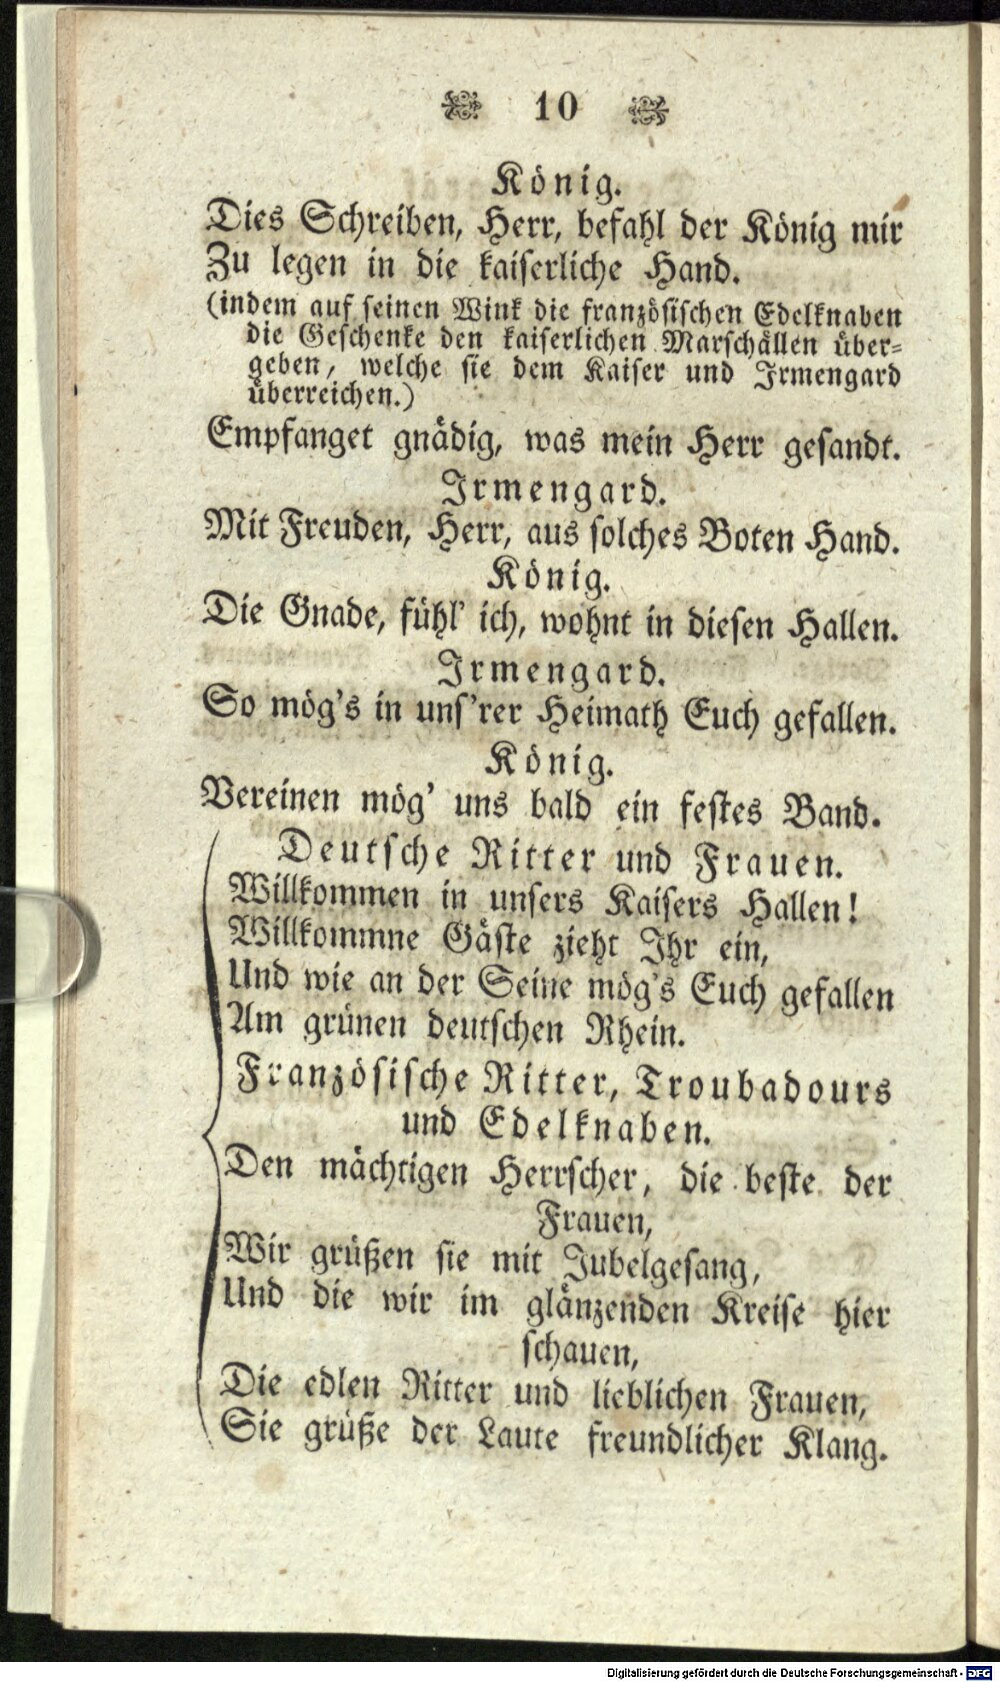 10
König.
Dies Schreiben, Herr, befahl der König mir
Zu legen in die kaiserliche Hand.
(indem auf seinen Wink die französischen Edelknaben
die Geschenke den kaiserlichen Marschällen über-
geben, welche sie dem Kaiser und Irmengard
überreichen.)
Empfanget gnädig, was mein Herr gesandt.
Irmengard.
Mit Freuden, Herr, aus solches Boten Hand.
König.
Die Gnade, fühl' ich, wohnt in diesen Hallen.
Irmengard.
So mög's in uns'rer Heimath Euch gefallen.
König.
Vereinen mög' uns bald ein festes Band.
Deutsche Ritter und Frauen.
Willkommen in unsers Kaisers Hallen!
Willkommne Gäste zieht Ihr ein,
Und wie an der Seine mög's Euch gefallen
Am grünen deutschen Rhein.
Französische Ritter, Troubadours
und Edelknaben.
Den mächtigen Herrscher, die beste der
Frauen,
Wir grüßen sie mit Jubelgesang,
Und die wir im glänzenden Kreise hier
schauen,
Die edlen Ritter und lieblichen Frauen,
Sie grüße der Laute freundlicher Klang.
Digitalisierung gefördert durch die Deutsche Forschungsgemeinschaft - DFG